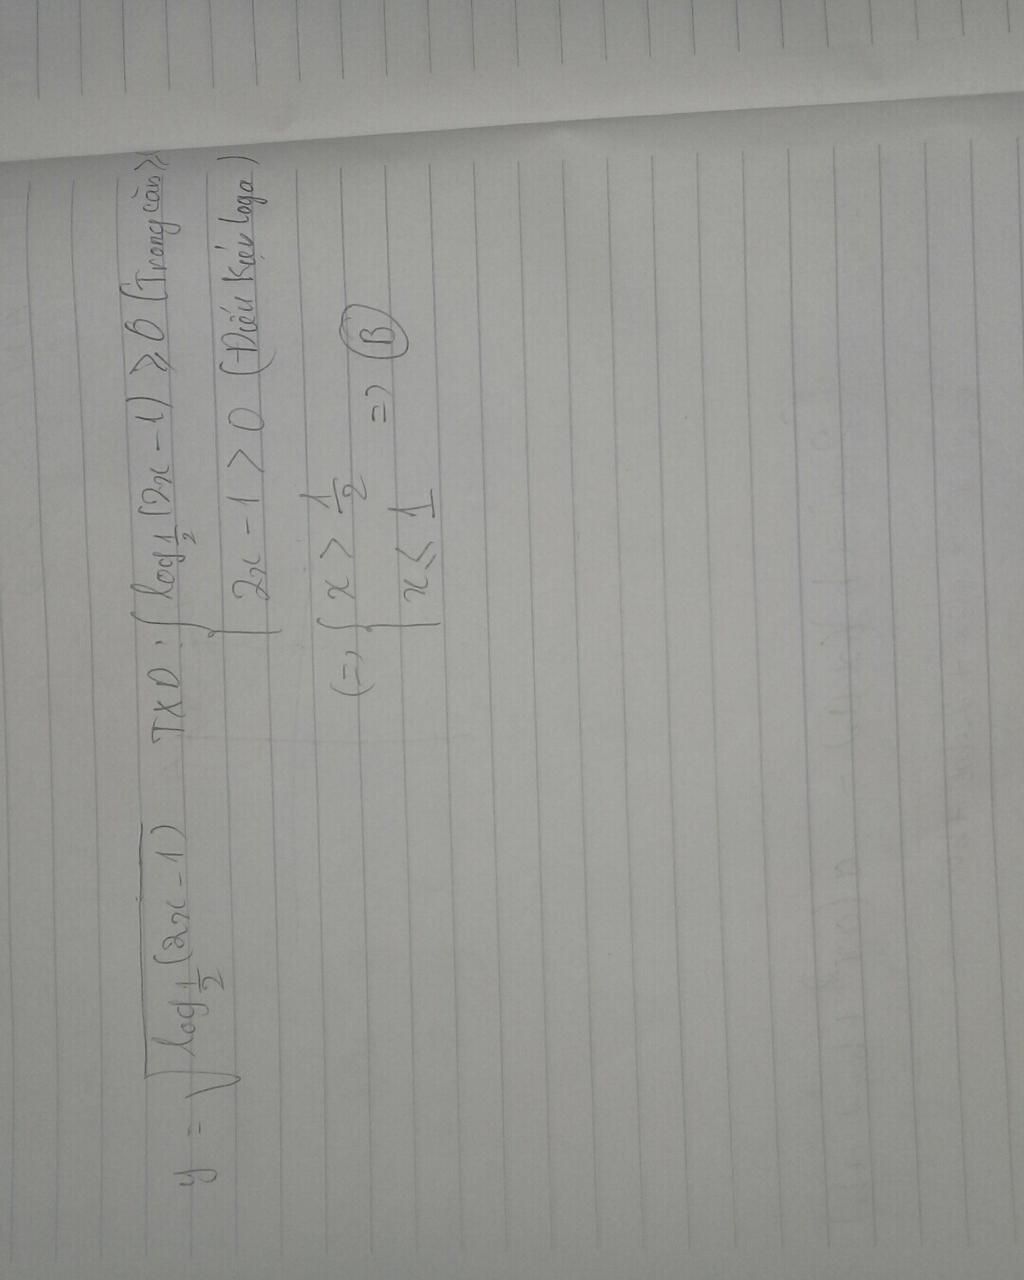 y = √log_{1/2}(2x - 1) TXD : { log_{1/2}(2x - 1) ⩾ 0 (Trong căn ⩾
2x - 1 > 0 (Điều kiện loga)
(=) { x > 1/2
x ⩽ 1 => B